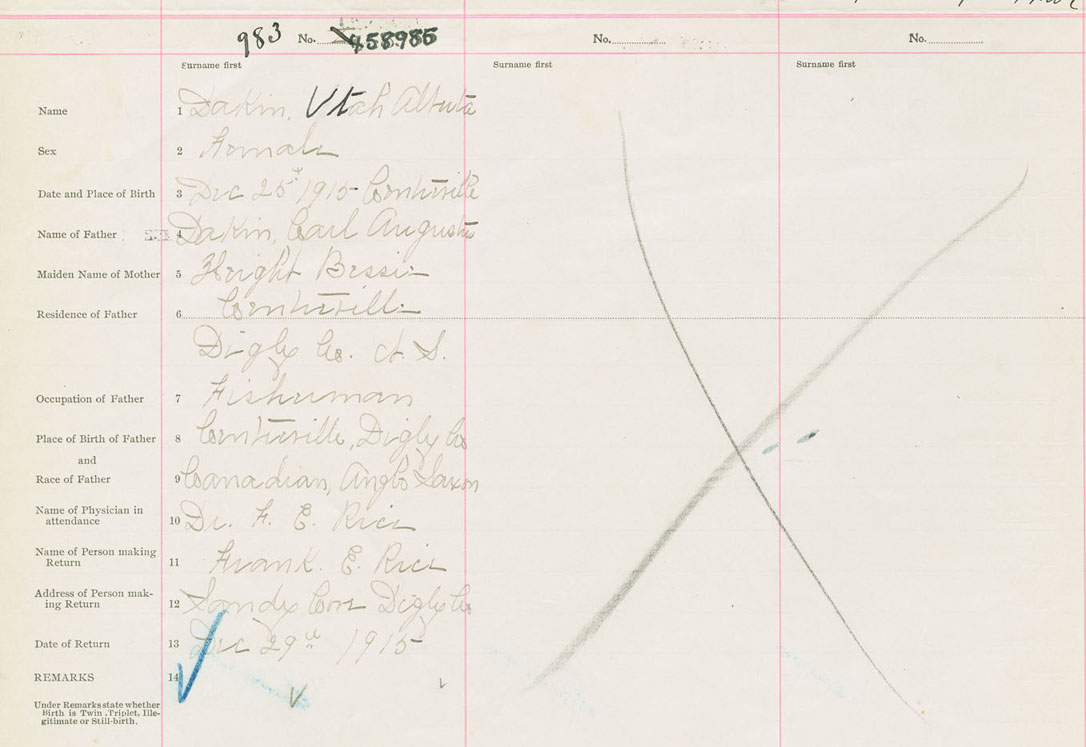 983 No. 458985 No. No.
Surname first Surname first Surname first
Name 1 Dakin, Utah Alberta
Sex 2 Female
Date and Place of Birth 3 Dec 25th 1915 Centreville
Name of Father 4 Dakin, Carl Augustu
Maiden Name of Mother 5 Height Bessie
Residence of Father 6 Centreville
Digby Co. N. S.
Occupation of Father 7 Fisherman
Place of Birth of Father 8 Centreville, Digby Co
and
Race of Father 9 Canadian, Anglo Saxon
Name of Physician in
attendance 10 Dr. F. E. Rice
Name of Person making
Return 11 Frank. E. Rice
Address of Person mak-
ing Return 12 Sandy Cove Digby Co
Date of Return 13 Dec 29th 1915
REMARKS 14
Under Remarks state whether
Birth is Twin, Triplet, Ille-
gitimate or Still-birth.